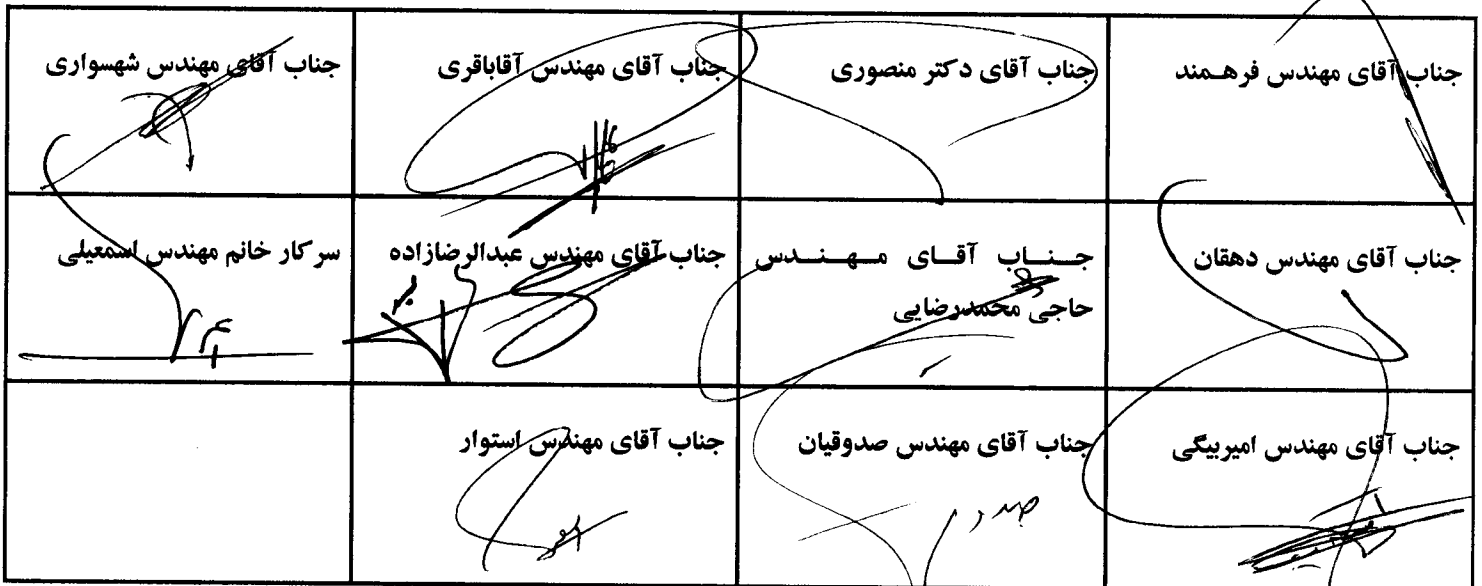 جناب آقای مهندس فرهمند
جناب آقای دکتر منصوری
جناب آقای مهندس آقاباقری
جناب آقای مهندس شهسواری
جناب آقای مهندس دهقان
جناب آقای مهندس
حاجی محمدرضایی
جناب آقای مهندس عبدالرضازاده
سرکار خانم مهندس اسمعیلی
جناب آقای مهندس امیربیگی
جناب آقای مهندس صدوقیان
جناب آقای مهندس استوار